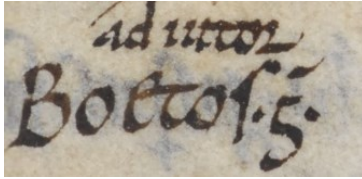 adiutor
Boetos·ḡ·